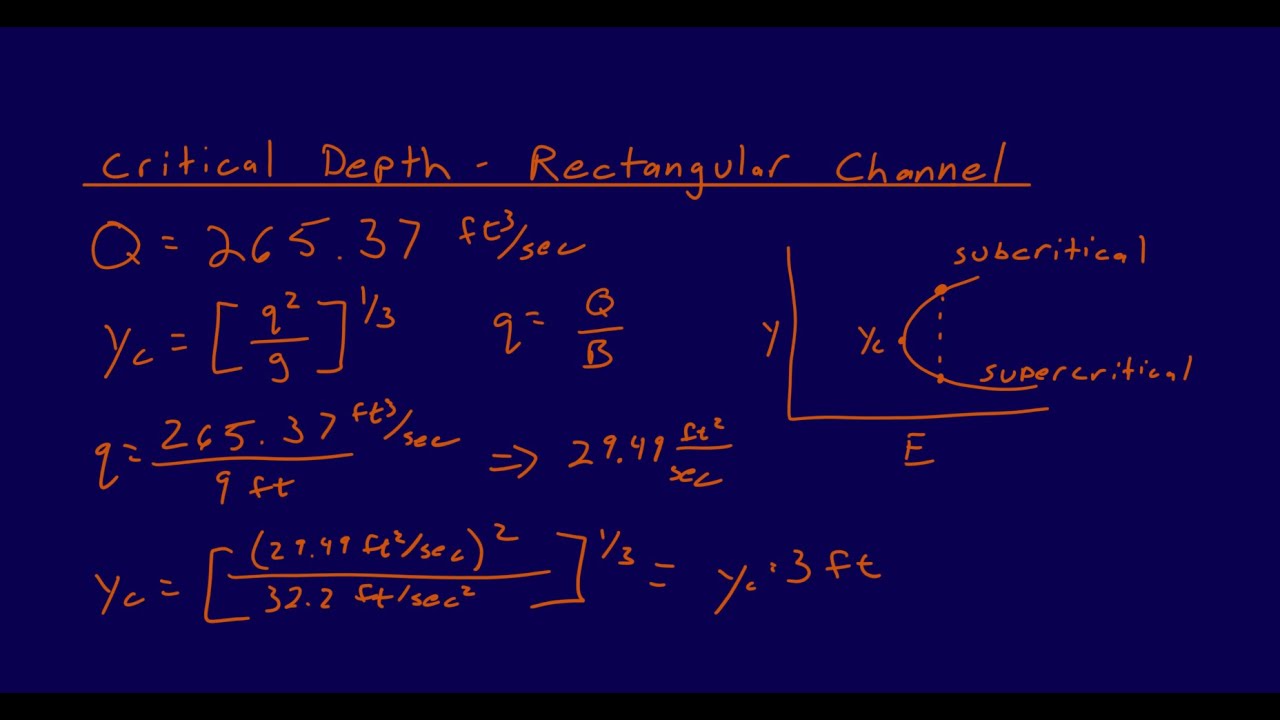 Critical Depth - Rectangular Channel
Q = 265.37 ft³/sec
yc = [q²/g]^1/3 q = Q/B
q = 265.37 ft³/sec / 9 ft => 29.49 ft²/sec
yc = [(29.49 ft²/sec)² / 32.2 ft/sec²]^1/3 = yc = 3 ft
subcritical
y
yc
supercritical
E